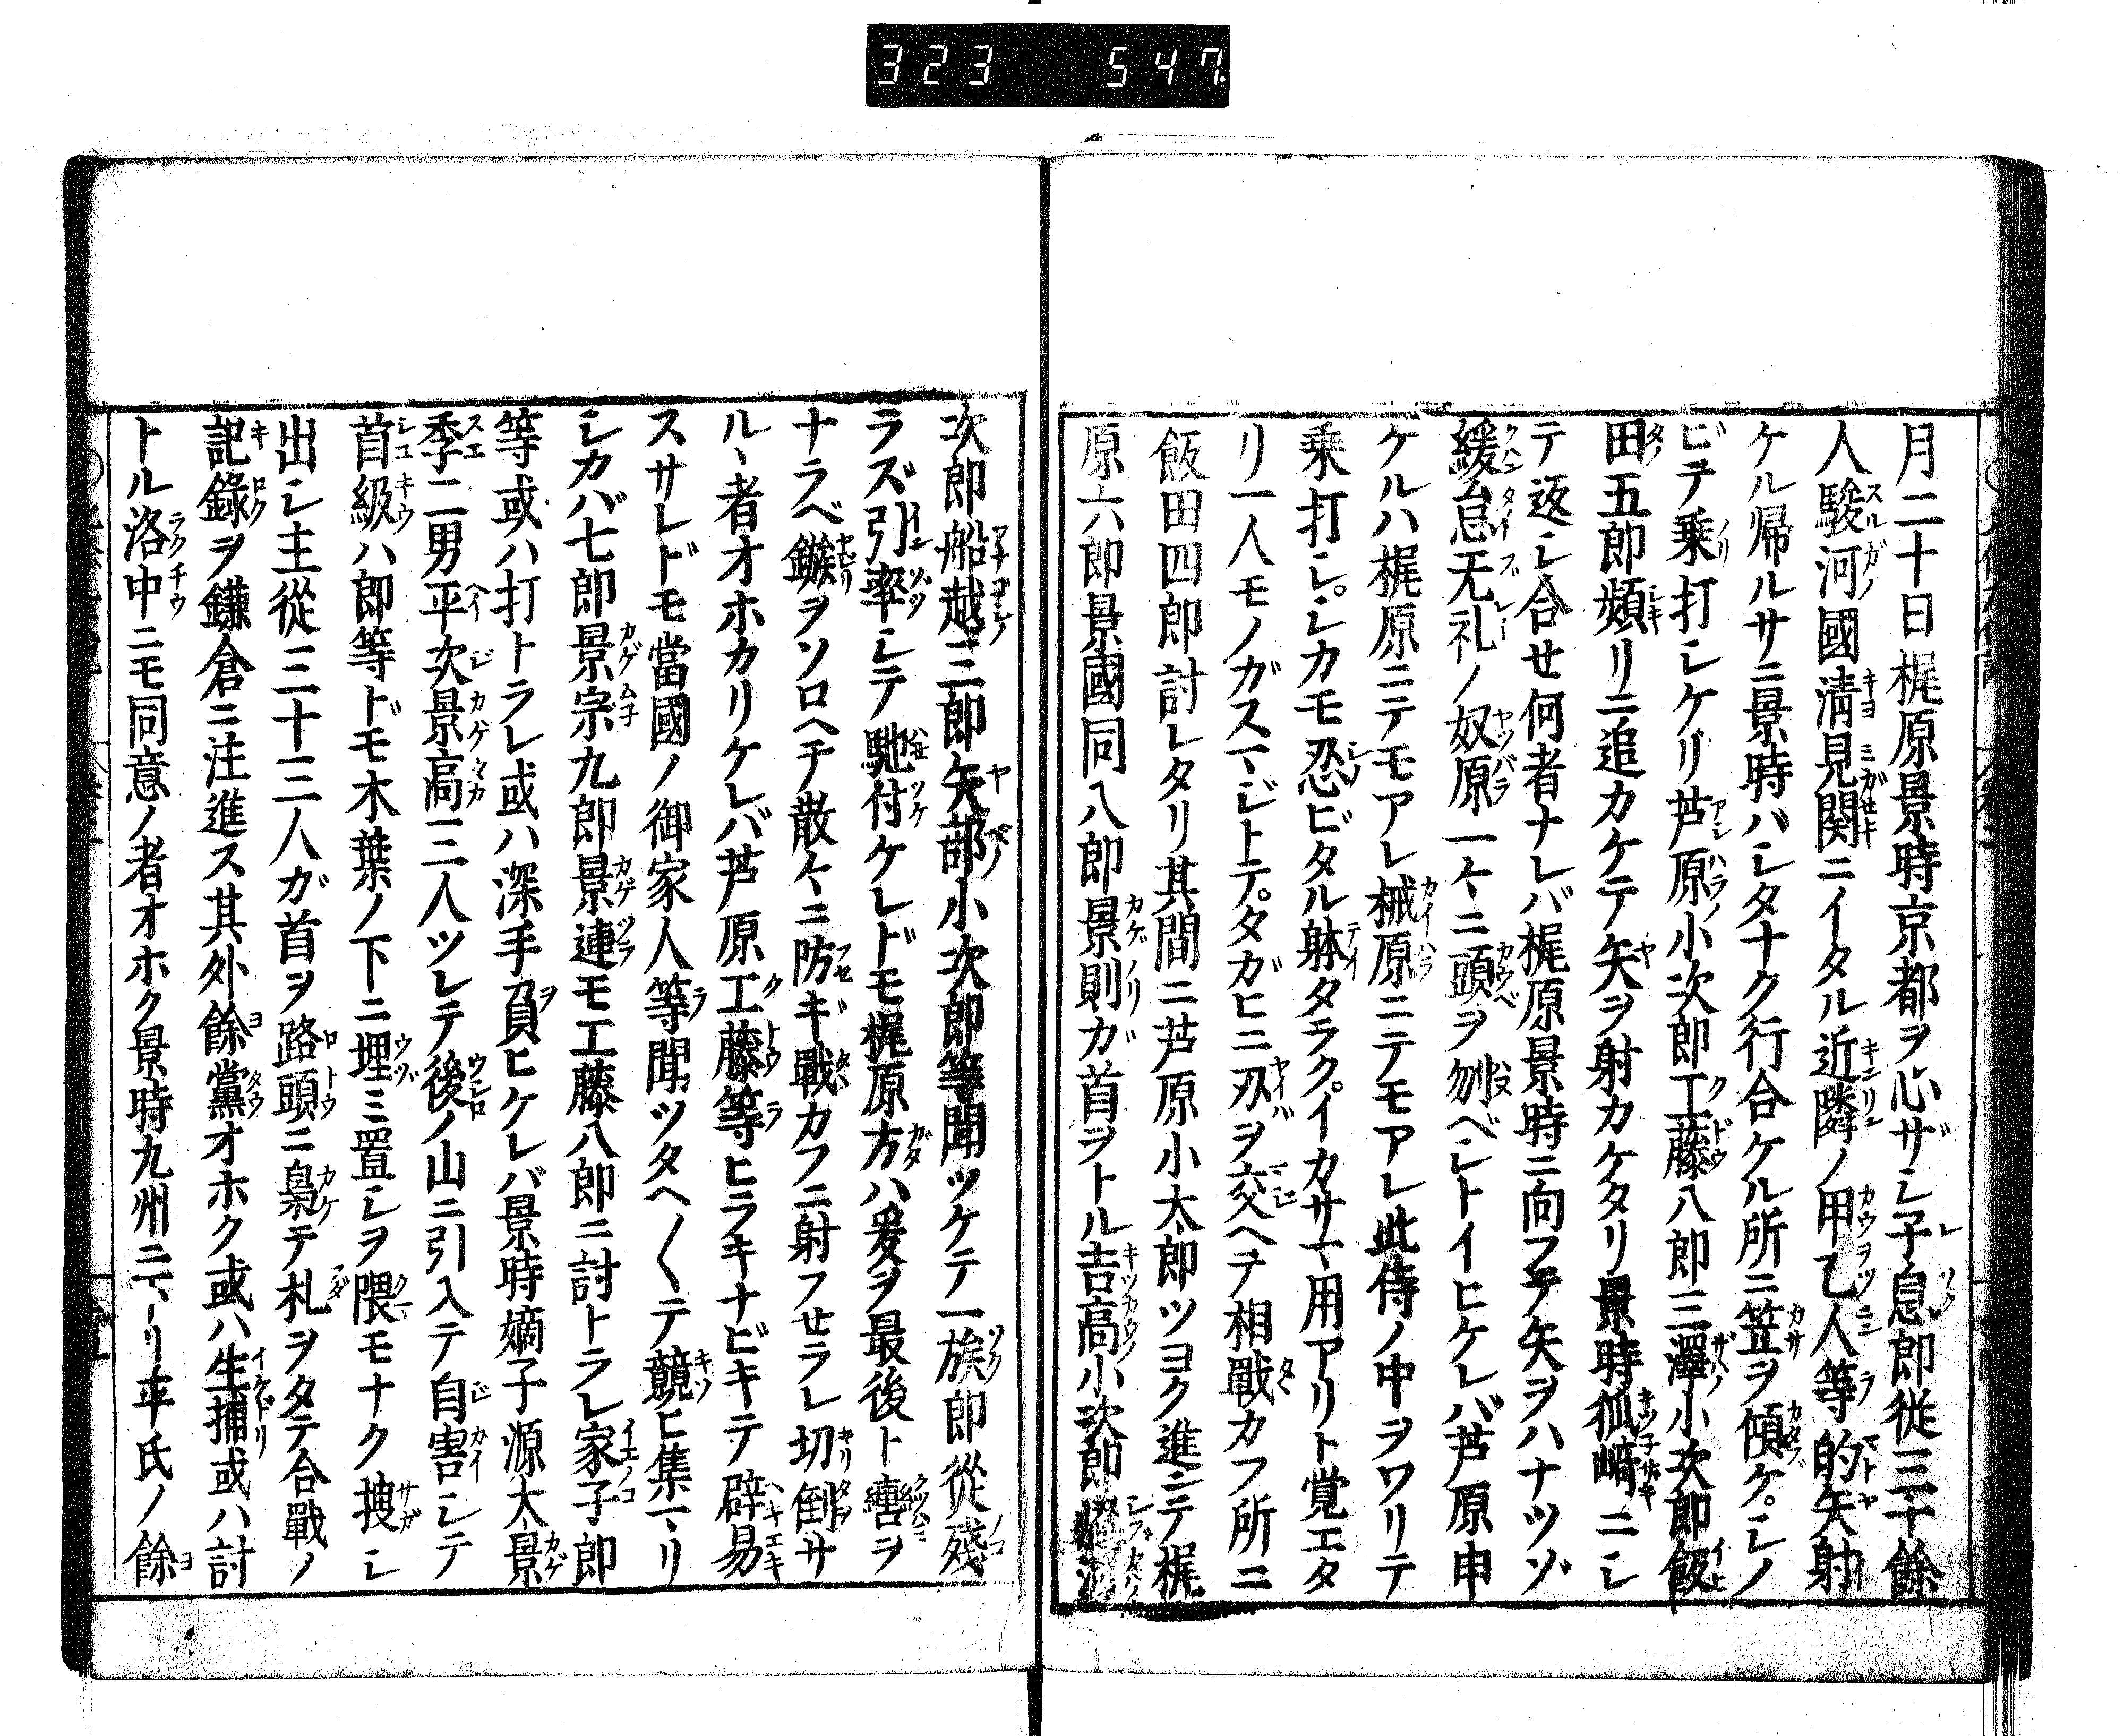 323 547
月二十日梶原景時京都ヲ心ザシ子息郎従三十餘
人駿河國淸見関ニイタル近隣ノ甲乙人等的矢射
ケル帰ルサニ景時ハシタナク行合ケル所ニ笠ヲ傾ケシノ
ビテ乗打シケリ芦原小次郎工藤八郎三澤小次郎飯
田五郎頻リニ追カケテ矢ヲ射カケタリ景時狐﨑ニシ
テ返シ合せ何者ナレバ梶原景時ニ向フテ矢ヲハナツゾ
緩怠无礼ノ奴原一々ニ頭ヲ刎ベシトイヒケレバ芦原申
ケルハ梶原ニテモアレ械原ニテモアレ此侍ノ中ヲワリテ
乗打シシカモ忍ビタル躰タラクイカサマ用アリト覚エタ
リ一人モノガスマジトテタガヒニ刄ヲ交ヘテ相戰カフ所ニ
飯田四郎討レタリ其間ニ芦原小太郎ツヨク進ンテ梶
原六郎景國同八郎景則ガ首ヲトル吉高小次郎
次郎船越三郎矢部小次郎等聞ツケテ一族郎従殘
ラズ引率シテ馳付ケレドモ梶原方ハ爰ヲ最後ト轡ヲ
ナラベ鏃ヲソロヘテ散々ニ防ギ戰カフニ射フせラレ切倒サ
ルヽ者オホカリケレバ芦原工藤等ヒラキナビキテ辟易
スサレドモ當國ノ御家人等聞ツタヘ〳〵テ競ヒ集マリ
シカバ七郎景宗九郎景連モ工藤八郎ニ討トラレ家子郎
等或ハ打トラレ或ハ深手負ヒケレバ景時嫡子源太景
季二男平次景高三人ツレテ後ノ山ニ引入テ自害シテ
首級ハ郎等ドモ木葉ノ下ニ埋ミ置シヲ隈モナク捜シ
出シ主從三十三人ガ首ヲ路頭ニ梟テ札ヲタテ合戰ノ
記錄ヲ鎌倉ニ注進ス其外餘黨オホク或ハ生捕或ハ討
トル洛中ニモ同意ノ者オホク景時九州ニマヽリ平氏ノ餘